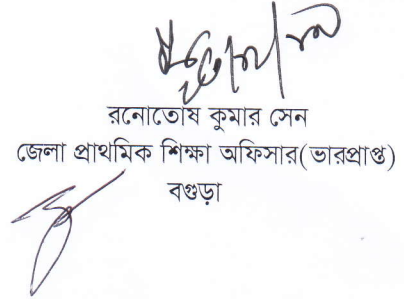 রনোতোষ কুমার সেন
জেলা প্রাথমিক শিক্ষা অফিসার(ভারপ্রাপ্ত)
বগুড়া